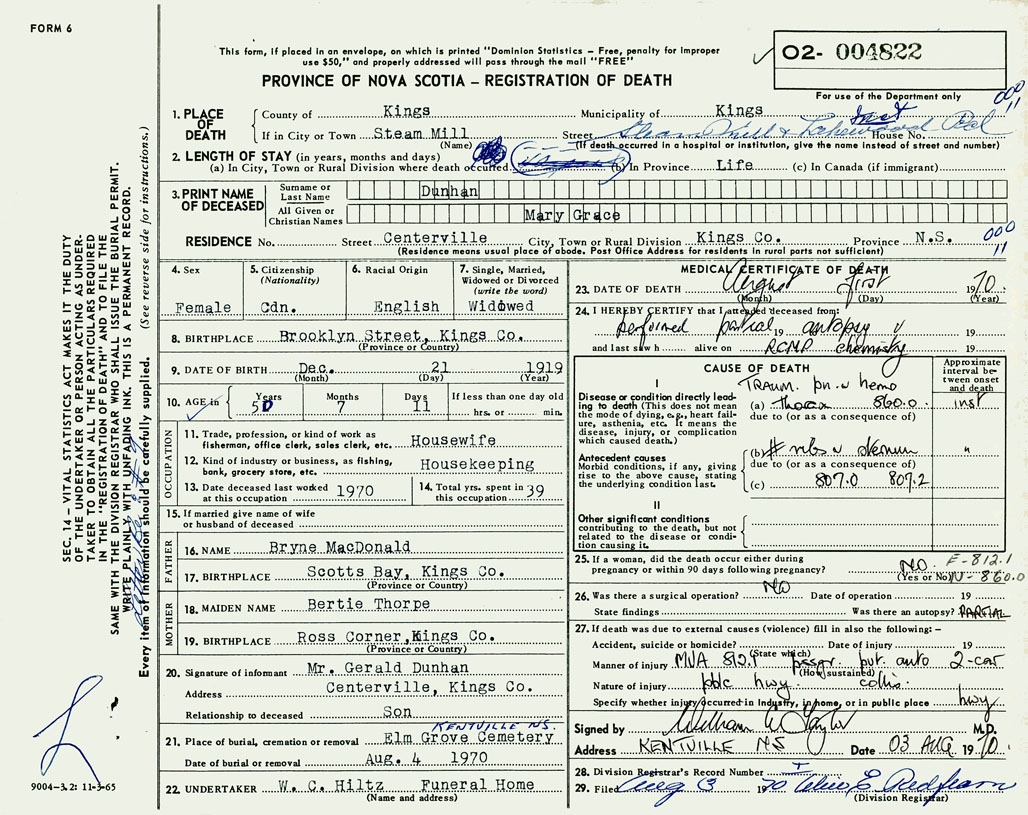 FORM 6
This form, if placed in an envelope, on which is printed "Dominion Statistics – Free, penalty for improper
use $50," and properly addressed will pass through the mail "FREE"
O2- 004822
PROVINCE OF NOVA SCOTIA – REGISTRATION OF DEATH
For use of the Department only
000
11
1. PLACE OF DEATH
County of Kings Municipality of Kings
If in City or Town Steam Mill Street Steam Mill & Lakewood Rd House No.
(Name) (If death occurred in a hospital or institution, give the name instead of street and number)
2. LENGTH OF STAY (in years, months and days)
(a) In City, Town or Rural Division where death occurred (b) In Province Life (c) In Canada (if immigrant)
3. PRINT NAME OF DECEASED
Surname or Last Name Dunhan
All Given or Christian Names Mary Grace
RESIDENCE No. Street Centerville City, Town or Rural Division Kings Co. Province N.S.
000
11
(Residence means usual place of abode. Post Office Address for residents in rural parts not sufficient)
4. Sex
Female
5. Citizenship
(Nationality)
Cdn.
6. Racial Origin
English
7. Single, Married,
Widowed or Divorced
(write the word)
Widowed
8. BIRTHPLACE Brooklyn Street, Kings Co.
(Province or Country)
9. DATE OF BIRTH Dec. 21 1919
(Month) (Day) (Year)
10. AGE in
Years Months Days If less than one day old
50 7 11 hrs. or min.
OCCUPATION
11. Trade, profession, or kind of work as
fisherman, office clerk, sales clerk, etc. Housewife
12. Kind of industry or business, as fishing,
bank, grocery store, etc. Housekeeping
13. Date deceased last worked
at this occupation 1970
14. Total yrs. spent in
this occupation 39
15. If married give name of wife
or husband of deceased
FATHER
16. NAME Bryne MacDonald
17. BIRTHPLACE Scotts Bay, Kings Co.
(Province or Country)
MOTHER
18. MAIDEN NAME Bertie Thorpe
19. BIRTHPLACE Ross Corner, Kings Co.
(Province or Country)
20. Signature of informant Mr. Gerald Dunhan
Address Centerville, Kings Co.
Relationship to deceased Son
KENTVILLE N.S.
21. Place of burial, cremation or removal Elm Grove Cemetery
Date of burial or removal Aug. 4 1970
22. UNDERTAKER W. C. Hiltz Funeral Home
(Name and address)
MEDICAL CERTIFICATE OF DEATH
23. DATE OF DEATH August first 1970
(Month) (Day) (Year)
24. I HEREBY CERTIFY that I attended deceased from:
performed partial 19 autopsy 19
and last saw h alive on RCMP chemistry 19
CAUSE OF DEATH
Approximate
interval be-
tween onset
and death
I
Disease or condition directly lead-
ing to death (This does not mean
the mode of dying, e.g., heart fail-
ure, asthenia, etc. It means the
disease, injury, or complication
which caused death.)
TRAUM. pn. hemo
(a) thorax 860.0 inst
due to (or as a consequence of)
Antecedent causes
Morbid conditions, if any, giving
rise to the above cause, stating
the underlying condition last.
(b) # ribs sternum "
due to (or as a consequence of)
(c) 807.0 807.2
II
Other significant conditions
contributing to the death, but not
related to the disease or condi-
tion causing it.
25. If a woman, did the death occur either during
pregnancy or within 90 days following pregnancy? NO
(Yes or No)
E-812.1
N-860.0
26. Was there a surgical operation? NO Date of operation 19
State findings Was there an autopsy? PARTIAL
27. If death was due to external causes (violence) fill in also the following: –
Accident, suicide or homicide? Date of injury 19
(State which)
Manner of injury MVA 812.1 pssgr. pvt. auto 2-car
(How sustained)
Nature of injury pblc hwy. collis.
Specify whether injury occurred in Industry, in home, or in public place hwy
Signed by William W Taylor M.D.
Address KENTVILLE NS Date 03 AUG 1970
28. Division Registrar's Record Number
29. Filed Aug 3 1970
(Division Registrar)
SEC. 14 – VITAL STATISTICS ACT MAKES IT THE DUTY
OF THE UNDERTAKER OR PERSON ACTING AS UNDER-
TAKER TO OBTAIN ALL THE PARTICULARS REQUIRED
IN THE "REGISTRATION OF DEATH" AND TO FILE THE
SAME WITH THE DIVISION REGISTRAR WHO SHALL ISSUE THE BURIAL PERMIT.
WRITE PLAINLY WITH UNFADING INK. THIS IS A PERMANENT RECORD.
Every item of information should be carefully supplied. (See reverse side for instructions.)
9004-3.2: 11-3-65